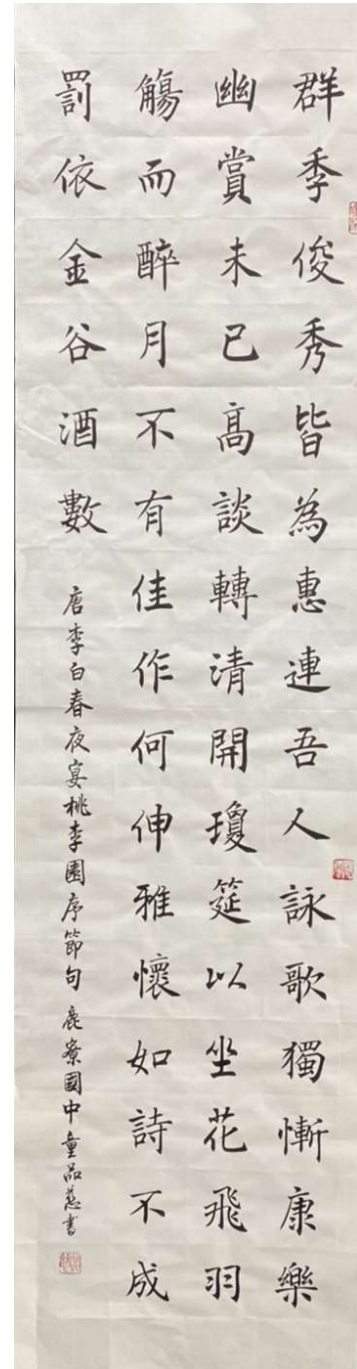 群季俊秀皆為惠連吾人詠歌獨慚康樂
幽賞未已高談轉清開瓊筵以坐花飛羽
觴而醉月不有佳作何伸雅懷如詩不成
罰依金谷酒數
唐李白春夜宴桃李園序節句 鹿寮國中童品慈書